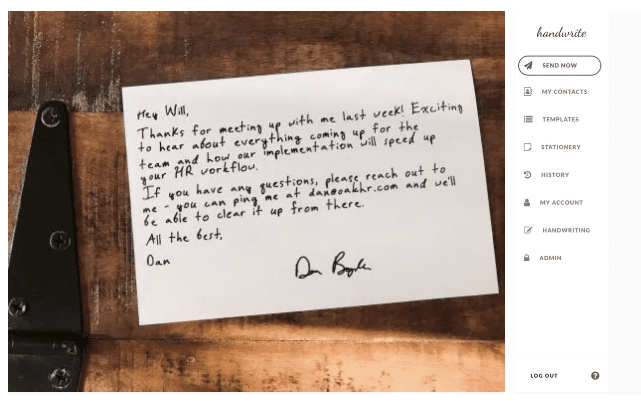 Hey Will,
Thanks for meeting up with me last week! Exciting
to hear about everything coming up for the
team and how our implementation will speed up
your HR workflow.
If you have any questions, please reach out to
me - you can ping me at dan@oakhr.com and we'll
be able to clear it up from there.
All the best,
Dan
Dan
handwrite
SEND NOW
MY CONTACTS
TEMPLATES
STATIONERY
HISTORY
MY ACCOUNT
HANDWRITING
ADMIN
LOG OUT
?